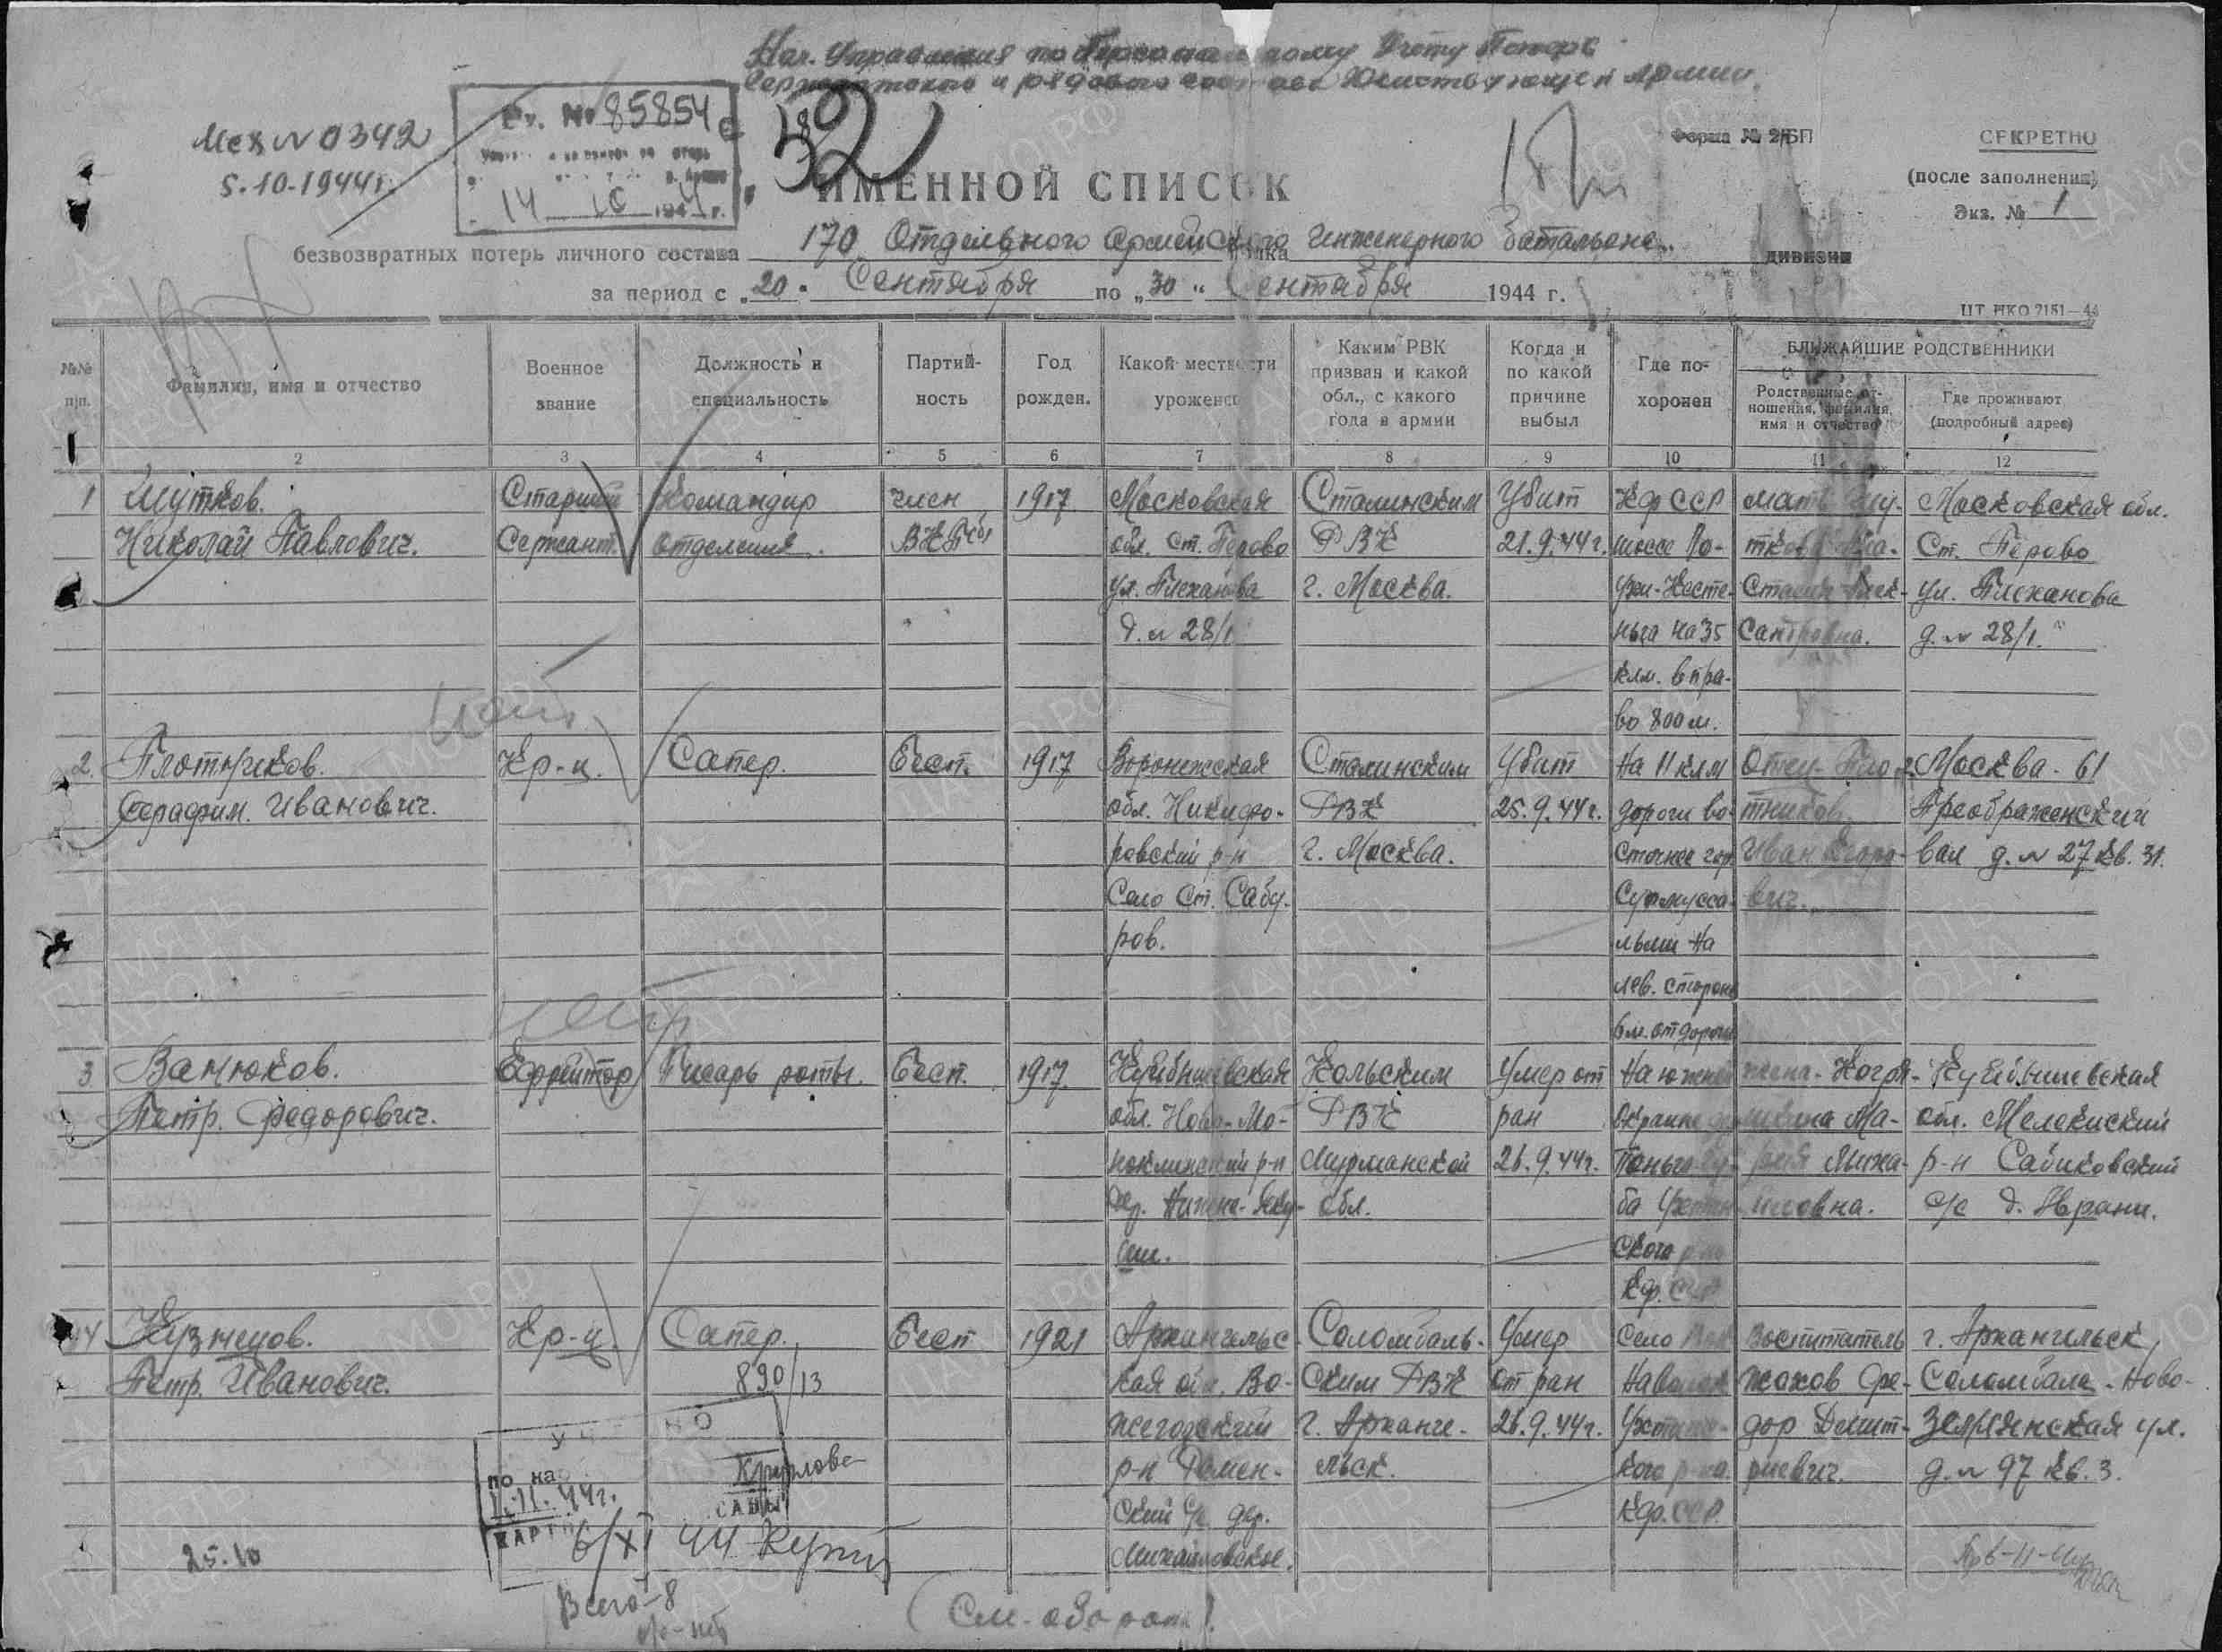 Нач. Управления по Персональному Учету Потерь
Сержантского и рядового состава Действующей Армии.
Исх № 0342
5.10-1944 г.
Вх. № 85854 с
14 10 1944 г.
52
Форма № 2/БП
СЕКРЕТНО
(после заполнения)
Экз. № 1
ИМЕННОЙ СПИСОК
безвозвратных потерь личного состава 170 Отдельного Армейского Инженерного Батальона дивизии
за период с „20" Сентября по „30" Сентября 1944 г.
ЦТ НКО 2151—44
№№ п/п.
Фамилия, имя и отчество
Военное звание
Должность и специальность
Партийность
Год рожден.
Какой местности уроженец
Каким РВК призван и какой обл., с какого года в армии
Когда и по какой причине выбыл
Где похоронен
БЛИЖАЙШИЕ РОДСТВЕННИКИ
Родственные отношения, фамилия, имя и отчество
Где проживают (подробный адрес)
1 2 3 4 5 6 7 8 9 10 11 12
1 Шутков. Старший Командир член 1917 Московская Сталинским Убит КФССР мать Шу- Московская обл.
Николай Павлович. Сержант. отделения. ВКП(б) обл. ст. Перово РВК 21.9.44г. шоссе Ло- ткова Ана- Ст. Перово
ул. Плеханова г. Москва. ухи-Кесте- Стасия Алек- ул. Плеханова
д. № 28/1 ньга на 35 сандровна. д. № 28/1.
клм. впра-
во 800 м.
2. Плотников. Кр-ц. Сапер. Бесп. 1917 Воронежская Сталинским Убит На 11 клм Отец-Пло- Москва-61
Серафим. Иванович. обл. Никифо- РВК 25.9.44г. дороги во- тников Преображенский
ровский р-н г. Москва. сточнее гор Иван Егоро- вал д. № 27 кв. 31.
Село Ст. Сабу- вич.
ров. на
лев. стороне
6 м. от дороги
3 Ванюков. Ефрейтор Писарь роты. Бесп. 1917 Куйбышевская Кольским Умер от На южной жена-Когря- Куйбышевская
Петр. Федорович. обл. Ново-Ма- РВК ран окраине Ма- обл. Мелекиский
инский р-н Мурманской 26.9.44г. рия Миха- р-н Сабиковский
дер. Нижне-Яку- обл. ба Ухтин- йловна. с/с д.
шки. ского р-на
КФ.ССР
4 Кузнецов. Кр-ц. Сапер. Бесп 1921 Архангельс- Соломбаль- Умер Село воспитатель г. Архангельск,
Петр. Иванович. 890/13 кая обл. Во- ским РВК от ран Наволок Жохов Фе- Соломбала-Ново-
жегодский г. Арханге- 26.9.44г. Ухтинс- дор Дмит- Землянская ул.
р-н льск. кого р-на. риевич. д. № 97 кв. 3.
ский с/с дер. КФ.ССР.
Михайловское.
Крылова
11.44г.
6/XI 44
25.10
Всего-8
(См. оборот)